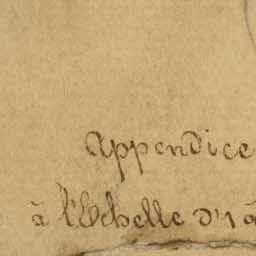 Appendice
à l'Echelle d'1 à